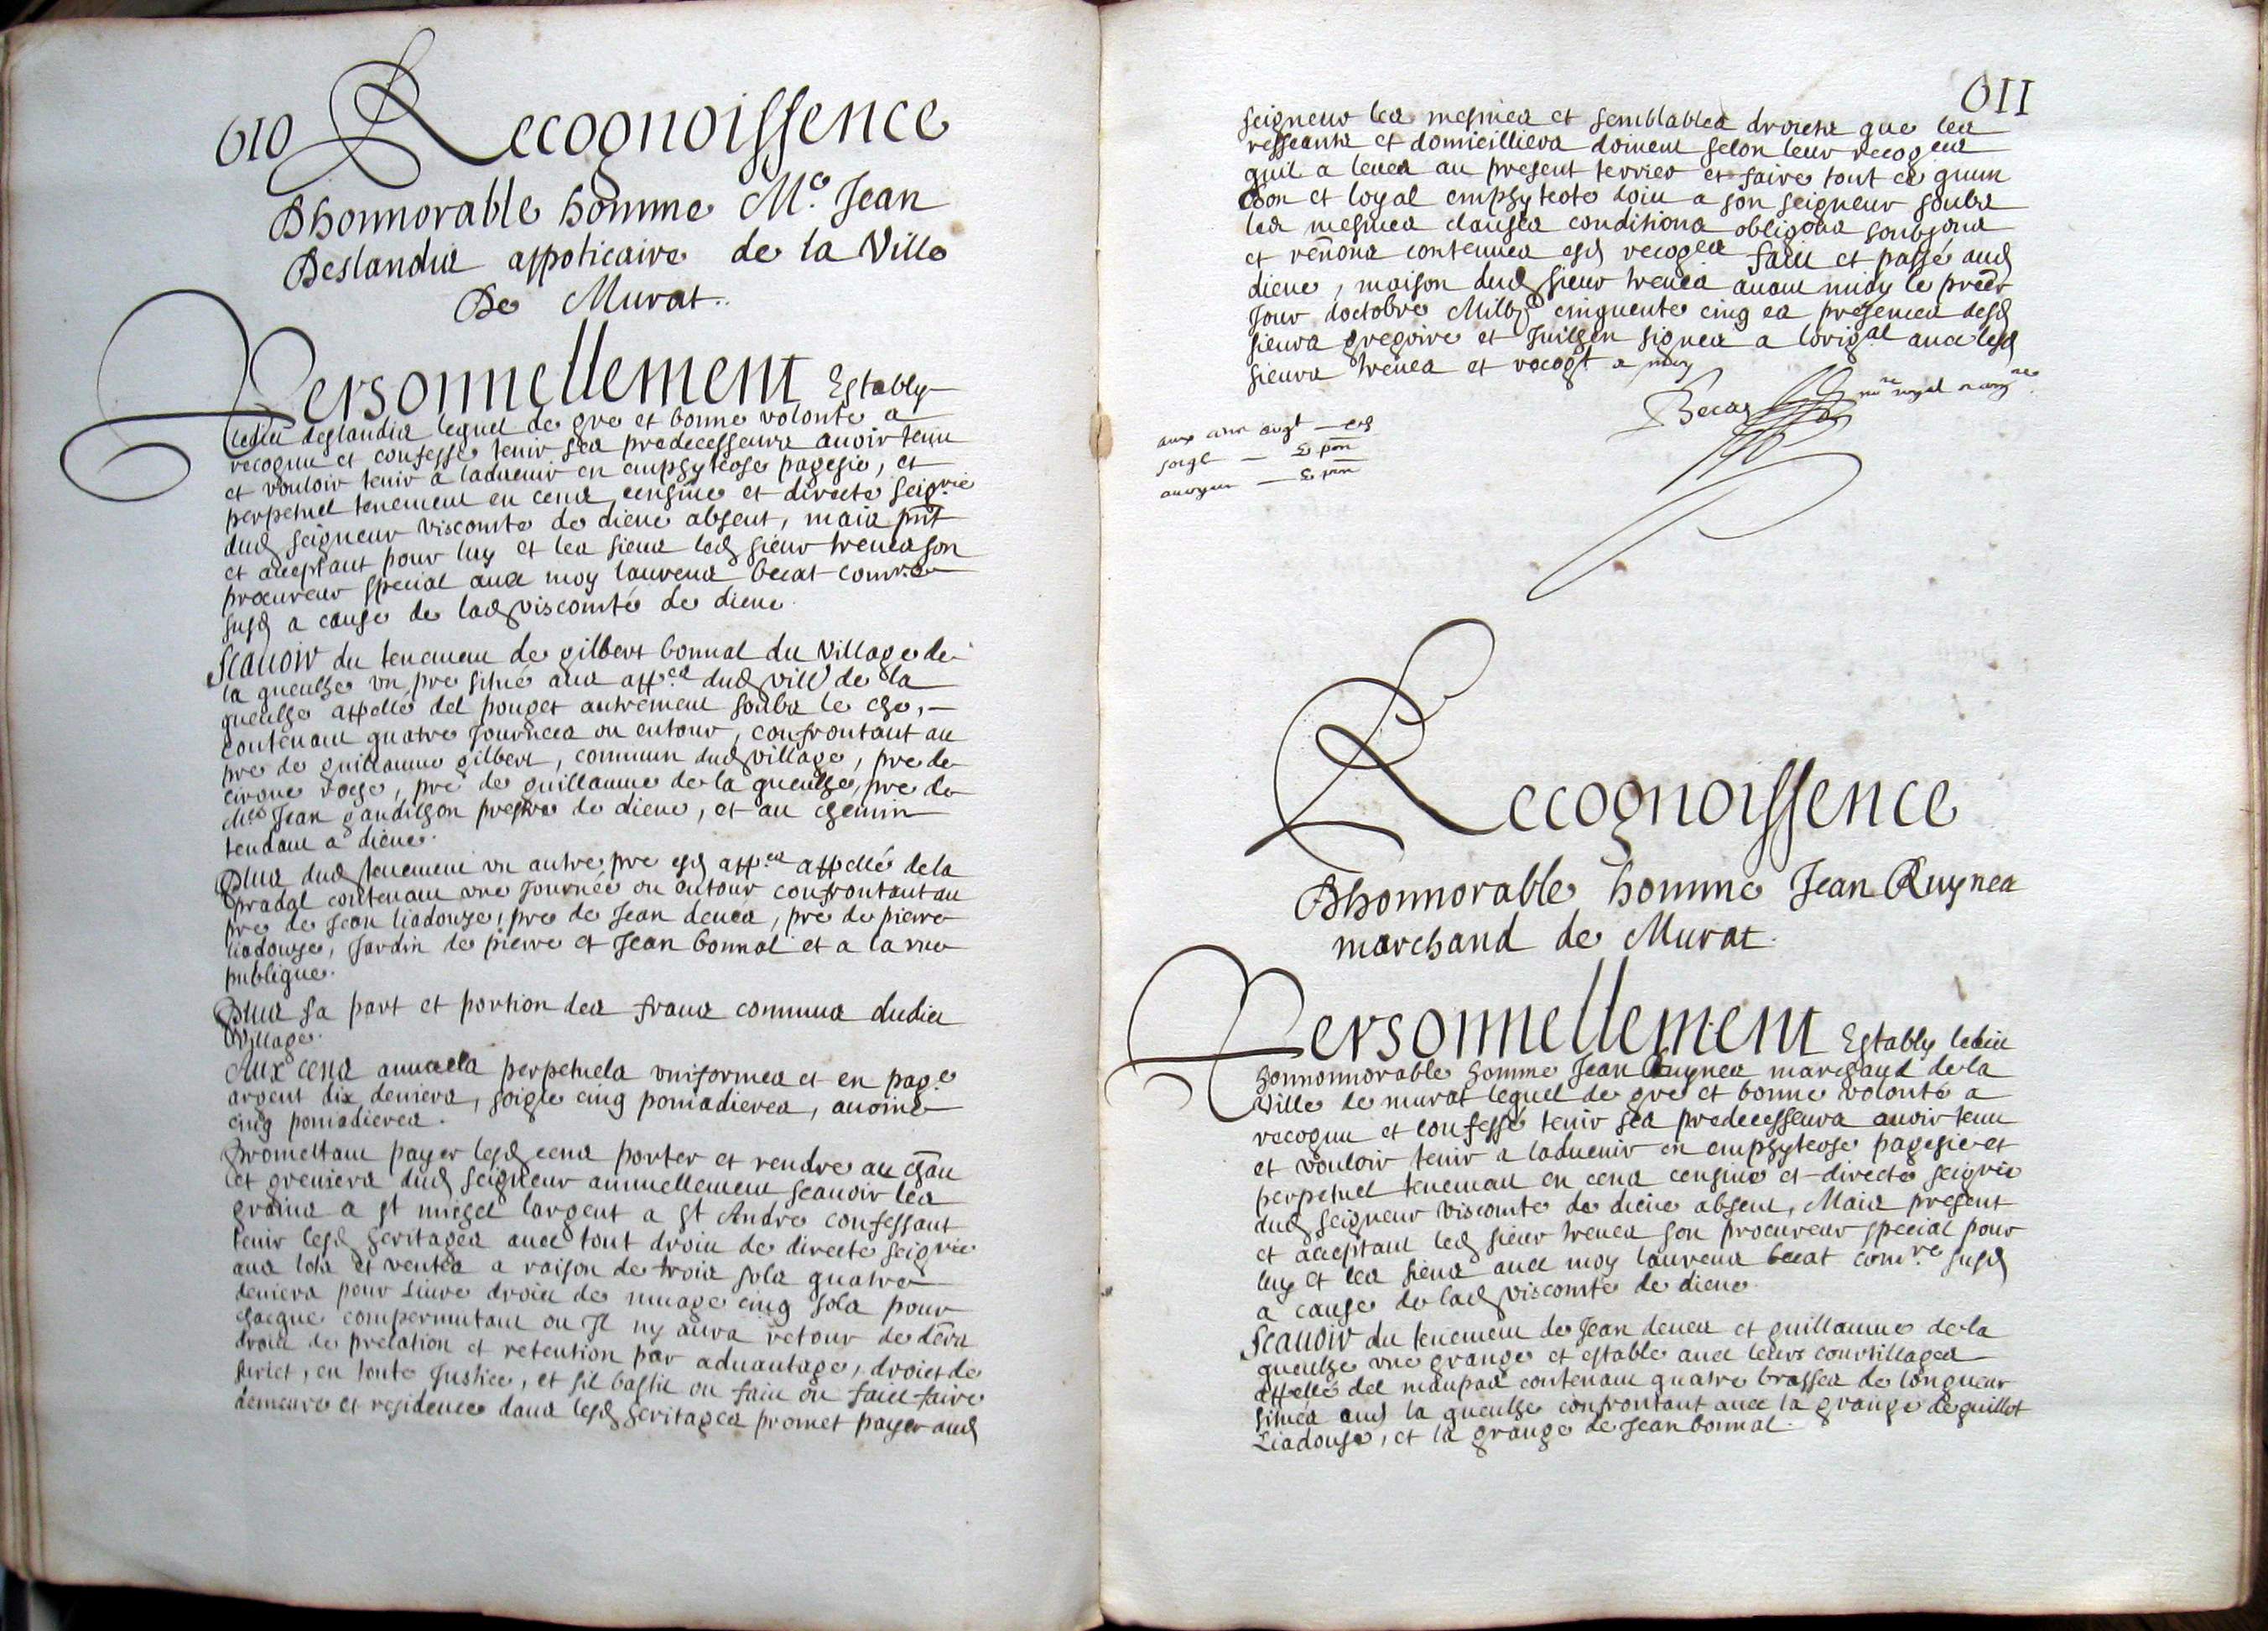 610
Recognoissence
Dhonnorable homme Me. Jean
Deslandis appoticaire de la Ville
De Murat..
Personnellement Estably
ledict deslandis lequel de gre et bonne volonte a
recognu et confesse tenir ses predecesseurs avoir tenu
et vouloir tenir a ladvenir en emphyteose pagesie, et
perpetuel tenement en cens censive et directe seigrie
dud seigneur viscomte de diene absent, mais pnt
et acceptant pour luy et les siens led sieur treves son
procureur special avec moy laurens becat comre
susd a cause de lad viscomté de diene
Scavoir du tenement de gilbert bonnal du village de
la gueulhe un pre situé aux appces dud vill de la
gueulhe appelle del pouget autrement soubz le cho,
contenant quatre Journees ou entour, confrontant au
pre de guillaume gilbert, commun dud village, pre de
cirgue roche, pré de guillaume de la gueulhe, pre de
Me Jean gandilhon prestre de diene, et au chemin
tendant a diene.
Plus dud tenement un autre pre esd appces appellé de la
pradal contenant une Journée ou entour confrontant au
pre de Jean liadouze, pre de Jean deves, pré de pierre
liadouze, Jardin de pierre et Jean bonnal et a la rue
publique.
Plus sa part et portion des fraux communs dudict
Village.
Aux cens annuels perpetuels uniformes et en page
argent dix deniers, soigle cinq pomadieres, avoine
cinq pomadieres.
Promettant payer lesd cens porter et rendre au chau
et greniers dud seigneur annuellement scavoir les
grains a st michel largent a st Andre confessant
tenir lesd heritages avec tout droict de directe seigrie
aux lotz et ventes a raison de trois solz quatre
deniers pour livre droict de muage cinq solz pour
chacque compermutant ou Il ny aura retour de ders
droict de prelation et retention par advantage, droict de
surict, en toute Justice, et sil bastit ou faict ou faict faire
demeure et residence dans lesd heritages promet payer aud
011
seigneur les mesmes et semblables droictz que les
resseants et domicilliers doivent selon leur recogces
quil a levés au present terrier et faire tout ce quun
bon et loyal emphyteote doict a son seigneur soubz
les mesmes clauses conditions obligons soubzons
et renons contenues esd recogces faict et passé aud
diene, maison dud sieur treves avant midy le preer
Jour doctobre Milbic cinquante cinq es presences desd
sieurs gregoire et Juilhen signes a lorigal avec lesd
sieurs treves et recogt a moy
Becat nre royal
aux
soigl
Recognoissence
Dhonnorable homme Jean Ruynes
marchand de Murat.
Personnellement Estably ledict
honnonnorable homme Jean Ruynes marchand de la
Ville de murat lequel de gre et bonne volonté a
recognu et confessé tenir ses predecesseurs avoir tenu
et vouloir tenir a ladvenir en emphyteose pagesie et
perpetuel tenement en cens censive et directe seigrie
dud seigneur viscomte de diene absent, Mais present
et acceptant led sieur treves son procureur special pour
luy et les siens avec moy laurens becat comre susd
a cause de lad viscomte de diene
Scavoir du tenement de Jean deves et guillaume de la
gueulhe une grange et estable avec leurs courtillages
appellé del maupas contenant quatre brasses de longueur
situés aud la gueulhe confrontant avec la grange de guillot
Liadouse, et la grange de Jean bonnal.